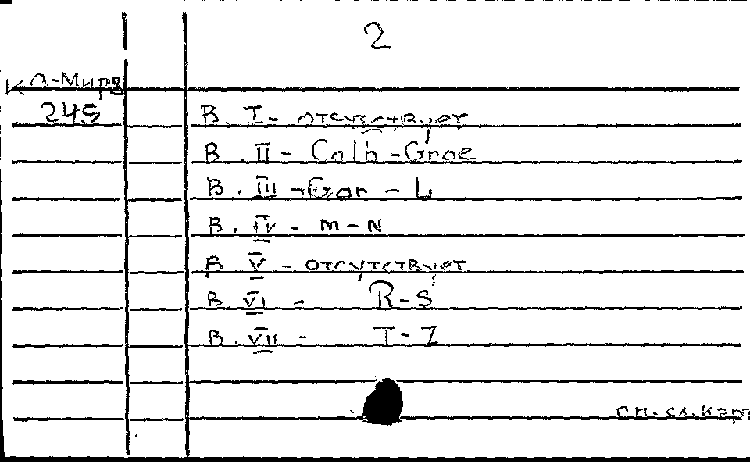 2
К А-Мира
245
B. I - отсутствует
B. II - Calb - Grae
B. III - Gran - L
B. IV - M - N
B. V - отсутствует
B. VI - R - S
B. VII - T - Z
см. сл. карт